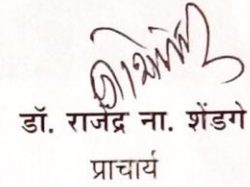 डॉ. राजेंद्र ना. शेंडगे
प्राचार्य